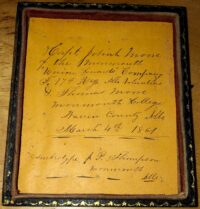 Capt Josiah Moore
of the Monmouth
Union Guards Company
F. 17th Reg Ills Volunteers
& Thomas Moore
Monmouth College
Warren County Ills
March 4th 1861
Ambrotype J. P. Thompson
Monmouth
Ills.